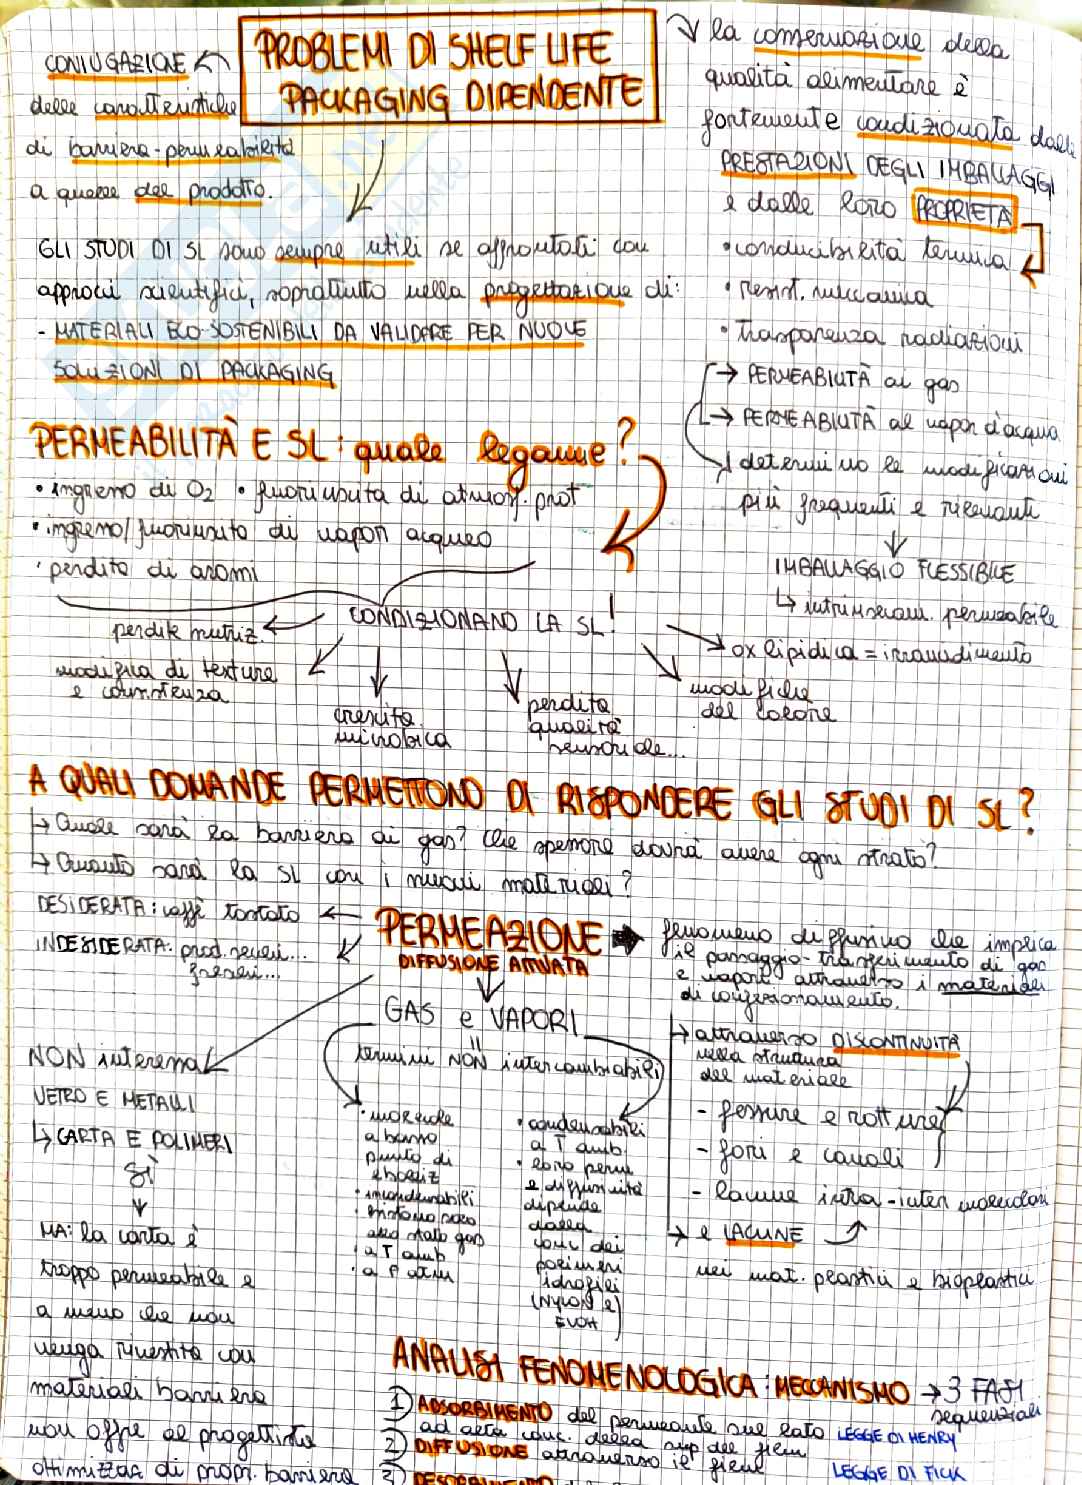 PROBLEMI DI SHELF LIFE
PACKAGING DIPENDENTE
CONIUGAZIONE
delle caratteristiche
di barriera-permeabilità
a quelle del prodotto.
la conservazione della
qualità alimentare è
fortemente condizionata dalle
PRESTAZIONI DEGLI IMBALLAGGI
e dalle loro PROPRIETÀ
• conducibilità termica
• resist. meccanica
• trasparenza radiazioni
→ PERMEABILITÀ ai gas
→ PERMEABILITÀ al vapor d'acqua
determinano le modificazioni
più frequenti e rilevanti
↓
IMBALLAGGIO FLESSIBILE
↳ intrinsecam. permeabile
GLI STUDI DI SL sono sempre utili se affrontati con
approcci scientifici, soprattutto nella progettazione di:
- MATERIALI ECO-SOSTENIBILI DA VALIDARE PER NUOVE
SOLUZIONI DI PACKAGING
PERMEABILITÀ E SL: quale legame?
• ingresso di O2 • fuoriuscita di atmosf. prot
• ingresso/fuoriuscita di vapor acqueo
• perdita di aromi
CONDIZIONANO LA SL!
perdite nutriz.
modifica di texture
e consistenza
crescita
microbica
perdita
qualità
sensoriale...
modifiche
del colore
ox lipidica = irrancidimento
A QUALI DOMANDE PERMETTONO DI RISPONDERE GLI STUDI DI SL?
↳ Quale sarà la barriera ai gas? Che spessore dovrà avere ogni strato?
↳ Quanto sarà la SL con i nuovi materiali?
DESIDERATA: caffè tostato
INDESIDERATA: prod. secchi...
freschi...
PERMEAZIONE
DIFFUSIONE ATTIVATA
fenomeno diffusivo che implica
il passaggio-trasferimento di gas
e vapori attraverso i materiali
di confezionamento.
→ attraverso DISCONTINUITÀ
nella struttura
del materiale
- fessure e rotture
- fori e canali
- lacune intra-inter molecolari
→ e LACUNE
nei mat. plastici e bioplastici
GAS e VAPORI
termini NON intercambiabili
• molecole
a basso
punto di
eboliz
• incondensabili
• esistono solo
allo stato gas
• a T amb
• a P atm
• condensabili
a T amb.
• loro perm
e diffusività
dipende
dalla
conc dei
polimeri
idrofili
(NYLON e
EVOH)
NON interessa
VETRO E METALLI
↳ CARTA E POLIMERI
SÌ
↓
MA: la carta è
troppo permeabile e
a meno che non
venga rivestita con
materiali barriera
non offre al progettista
ottimizzaz di propr. barriera
ANALISI FENOMENOLOGICA: MECCANISMO → 3 FASI
sequenziali
1) ADSORBIMENTO del permeante sul lato
ad alta conc. della sup del film LEGGE DI HENRY
2) DIFFUSIONE attraverso il film
LEGGE DI FICK
3) DESORBIMENTO